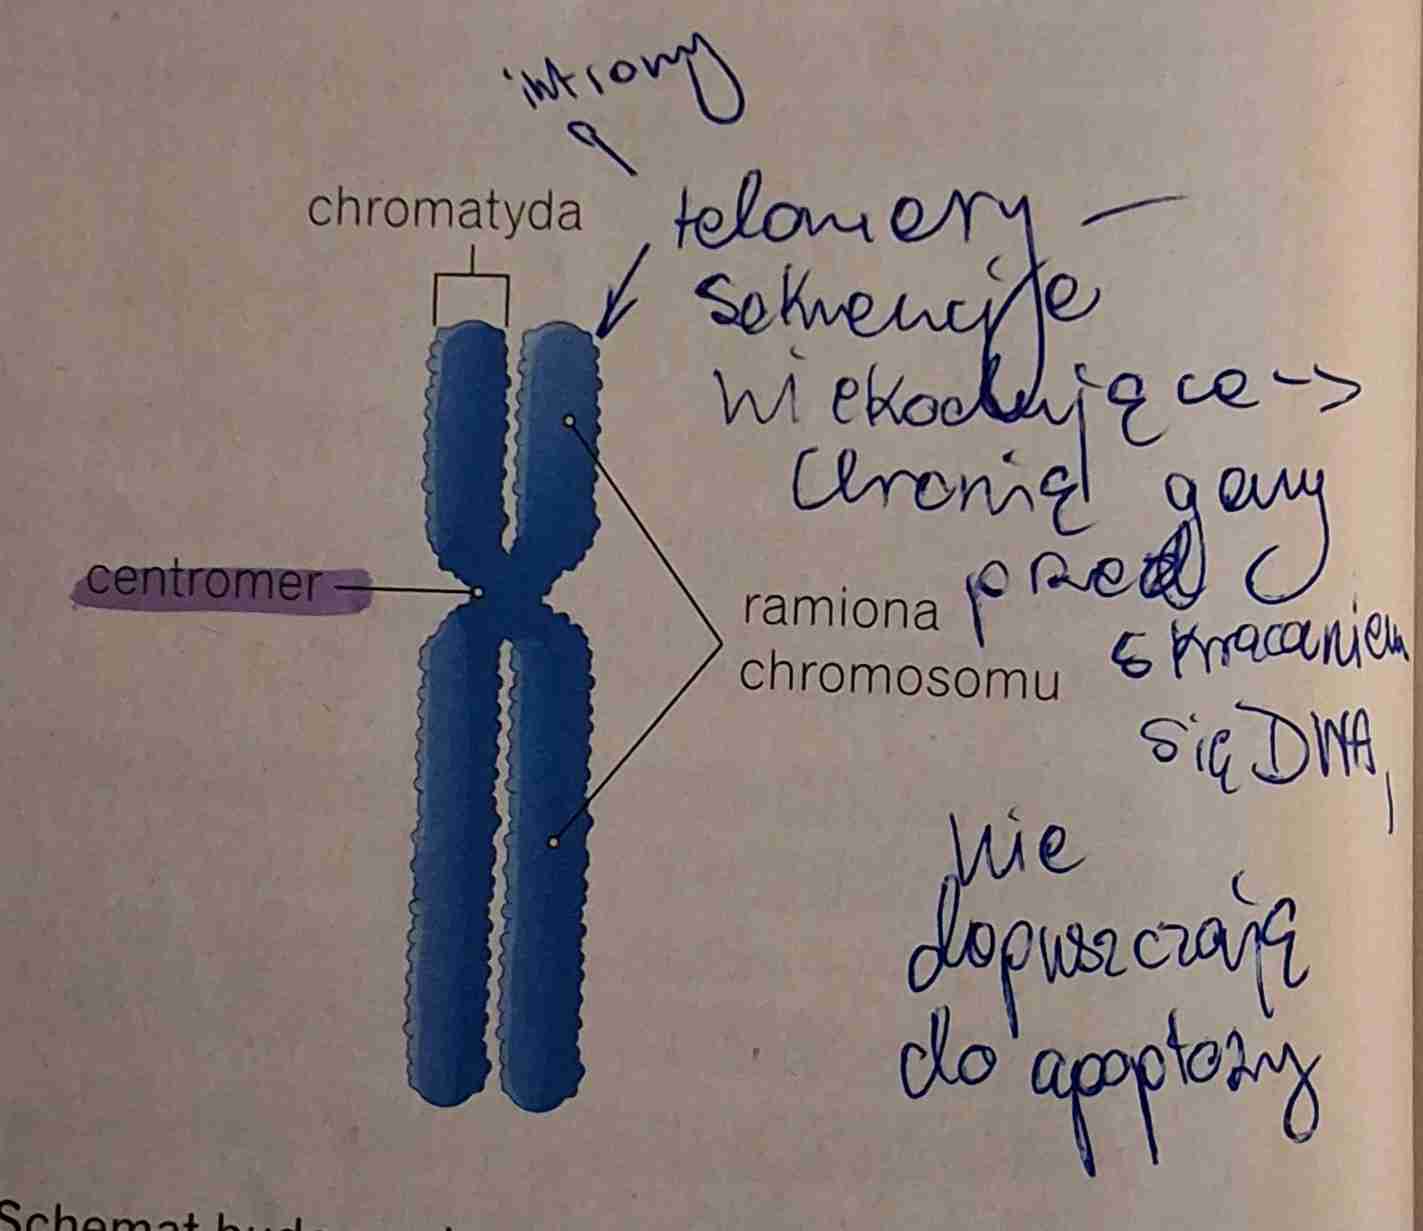 introny
chromatyda
telomery –
sekwencje
niekodujące ->
chronią geny
przed
skracaniem
się DNA,
centromer
ramiona
chromosomu
nie
dopuszczają
do apoptozy